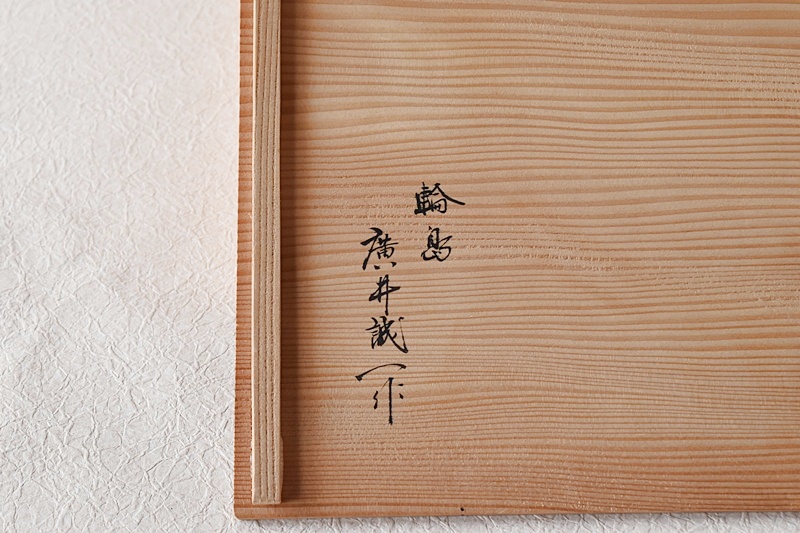 輪島
廣井誠一作